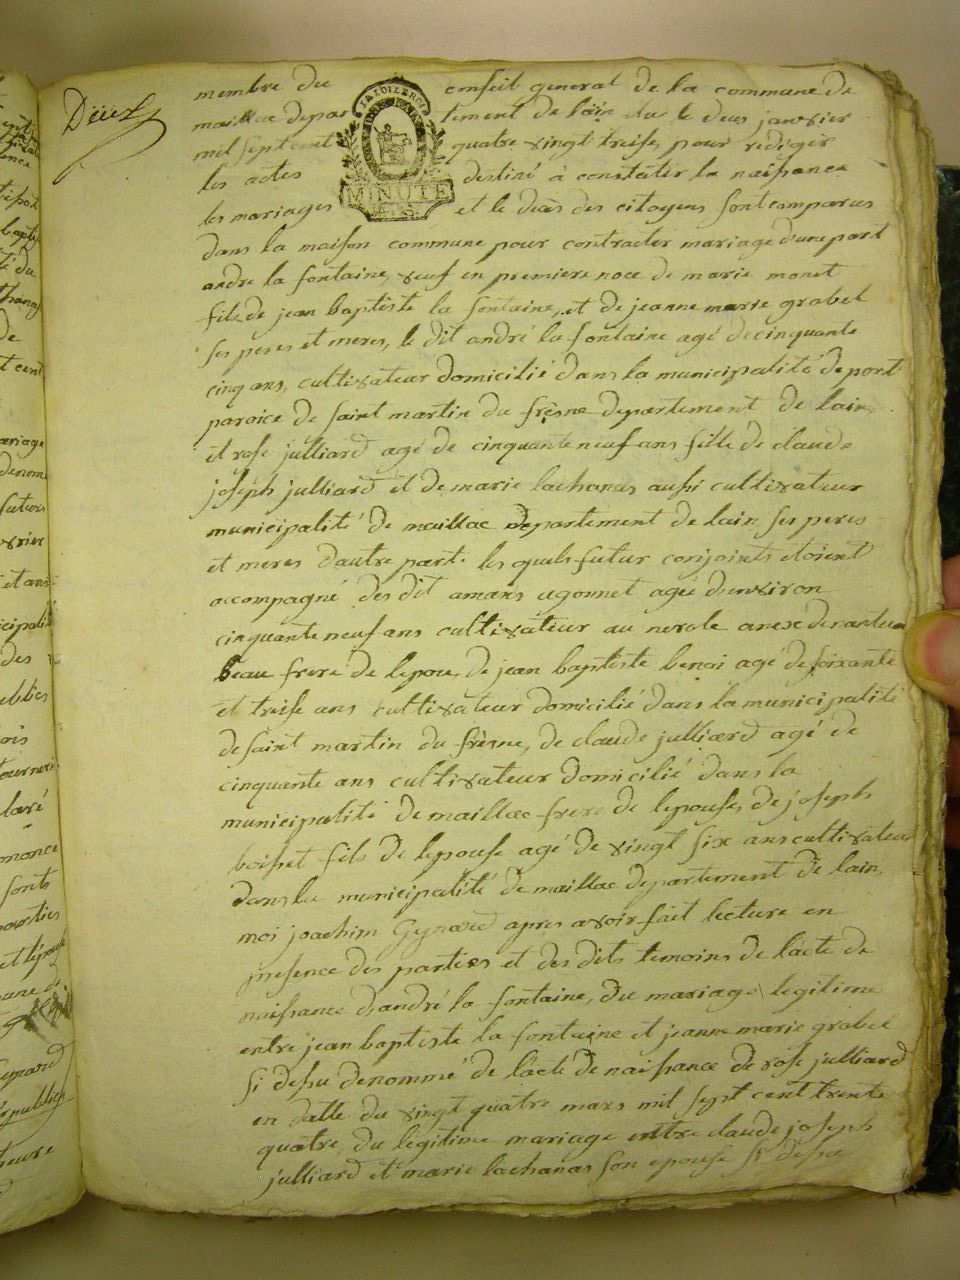 membre du conseil general de la commune de
maillac depar tement de l'ain elu le deus janvier
mil sept cent quatre vingt treise, pour redigér
les actes destiné à constatér la naissance
les mariages et le decès des citoyens sont comparus
MINUTE
dans la maison commune pour contractér mariage d'une part
andre la fontaine, veuf en premiere noce de marie monet
fils de jean baptiste la fontaine, et de jeanne marie grabel
ses peres et meres, le dit andré la fontaine agé de cinquante
cinq ans, cultivateur domicilié dans la municipalité de port
paroice de saint martin du frèsne departement de lain,
et rose julliard agé de cinquante neuf ans fille de claude
joseph julliard et de marie lachanas aussi cultivateur
municipalité de maillac departement de lain ses peres
et meres d'autre part. les quels futur conjoints etoient
accompagné des dit amans ugonnet agée d'environ
cinquante neuf ans cultivateur au nerole anexe de nantua
beau frere de lepou, de jean baptiste benoi agé de soixante
et treise ans cultivateur domicilié dans la municipalité
de saint martin du frèsne, de claude julliard agé de
cinquante ans cultivateur domicilié dans la
municipalité de maillac frere de lepouse, de joseph
boisset fils de lepouse agé de vingt six ans cultivateur
dans la municipalité de maillac departement de lain,
moi joachim Gynard apres avoir fait lecture en
presence des parties et des dits temoins de lacte de
naissance d'andré la fontaine, du mariage legitime
entre jean baptiste la fontaine et jeanne marie grabel
si desu denommé de lacte de naissance de rose julliard
en datte du vingt quatre mars mil sept cent trente
quatre du legitime mariage entre claude joseph
julliard et marie lachanas son epouse si desu